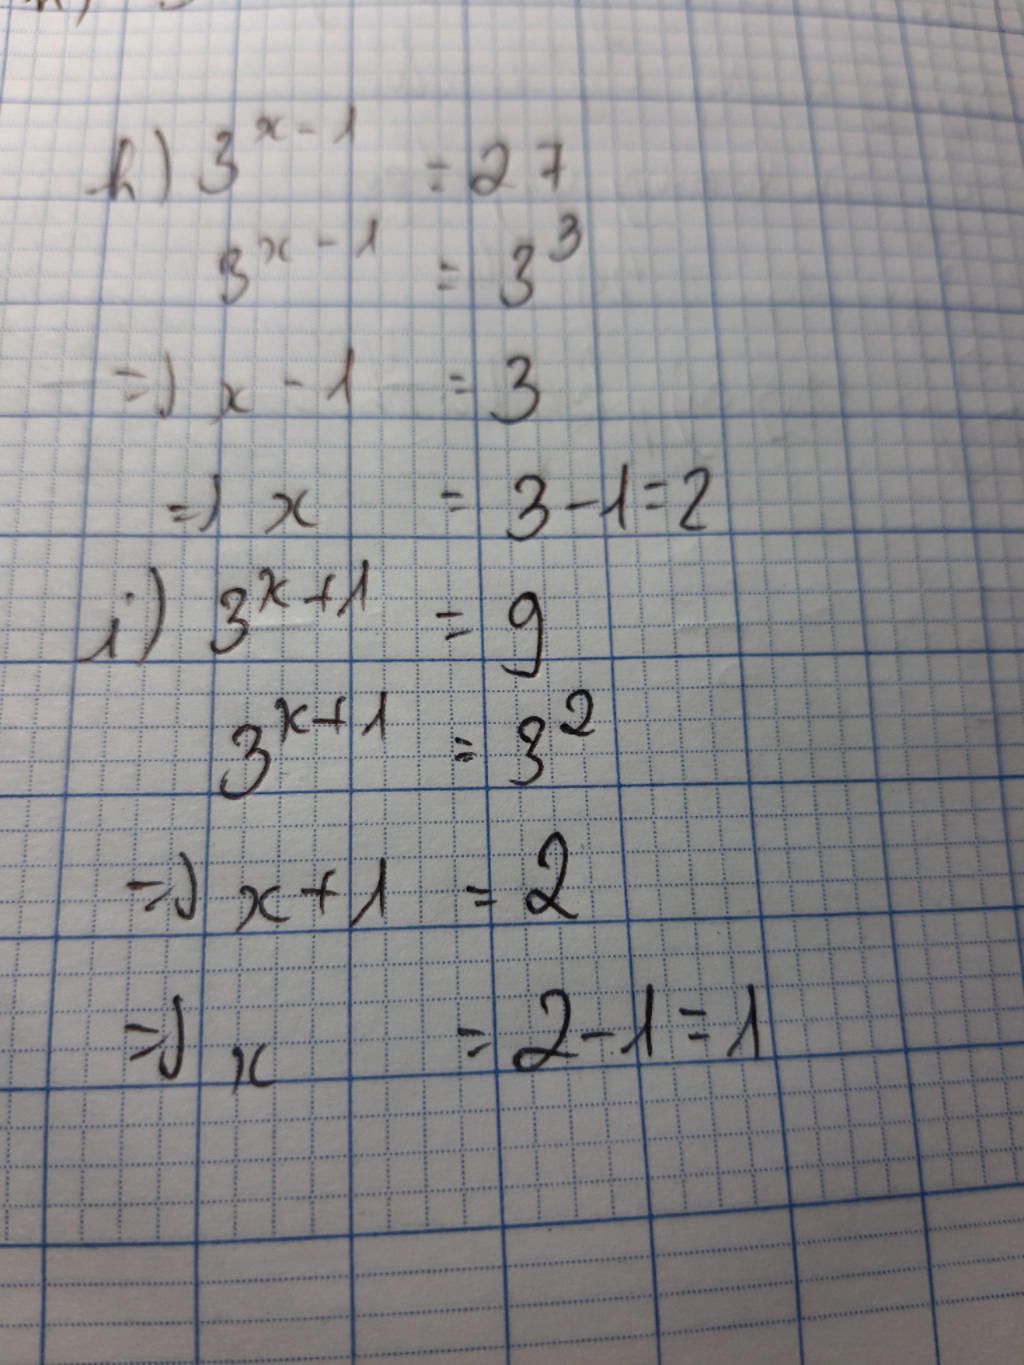 h) 3^{x-1} = 27
3^{x-1} = 3^3
=> x - 1 = 3
=> x = 3 - 1 = 2
i) 3^{x+1} = 9
3^{x+1} = 3^2
=> x + 1 = 2
=> x = 2 - 1 = 1